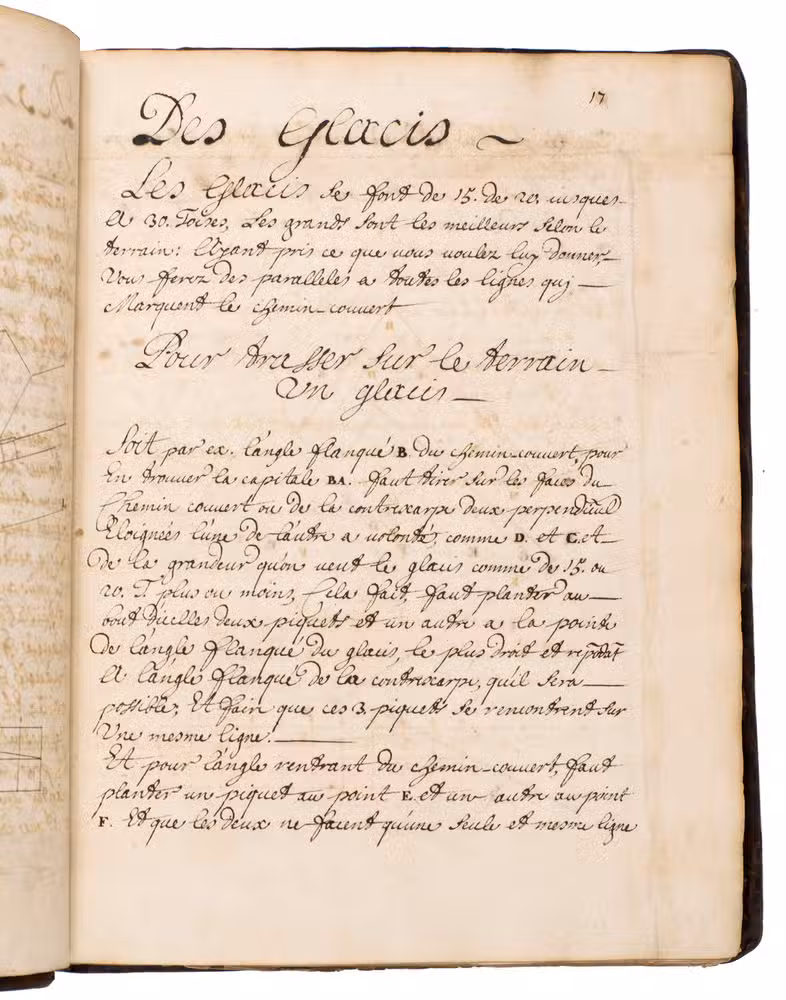 17
Des Glacis ~
Les Glacis se font de 15. de 20. iusques-
A 30. Toises, Les grands sont les meilleurs selon le
terrain: Ayant pris ce que vous voulez luy donner,
Vous ferez des paralleles a toutes les lignes quj —
Marquent le chemin-couvert
Pour trasser sur le terrain —
Un glacis —
Soit par ex. l'angle flanqué B. du chemin-couvert, pour
En trouver la capitale BA. faut tirer sur les faces du
Chemin couvert ou de la contrexarpe deux perpendicul
Eloignées l'une de l'autre a volonté, comme D. et C. et —
de la grandeur qu'on veut le glacis comme de 15. ou
20. T. plus ou moins, Cela fait, faut planter au —
bout d'icelles deux piquets et un autre a la pointe
De l'angle flanqué du glacis, le plus droit et
A l'angle flanqué de la contrexarpe, qu'il sera —
possible, Et fair que ces 3. piquets se rencontrent sur
Une mesme ligne. —
Et pour l'angle rentrant du chemin-couvert, faut
planter un piquet au point E. et un autre au point
F. Et que les deux ne facent qu'une seule et mesme ligne